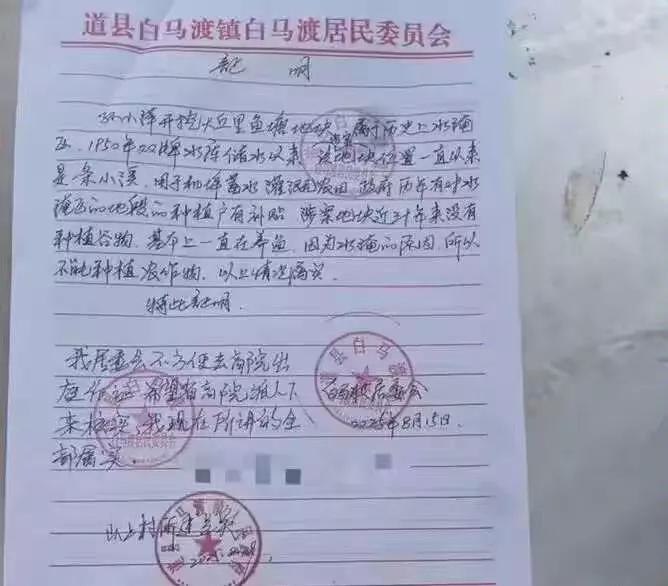 道县白马渡镇白马渡居民委员会
证 明
孙小萍开挖大丘里鱼塘地块 属于历史上水淹
区，1950年 水库储水以来 该地块位置一直以来
是一条小溪，用于 蓄水灌溉农田 政府历年有对水
淹区的地段的种植户有补贴 涉案地块近三十年来没有
种植谷物，基本上一直在养鱼，因为水淹的原因，所以
不能种植农作物，以上情况属实。
特此证明.
我居委会不方便去高院出
庭作证 希望省高院派人下
来核实，我现在所讲的全
部属实。
白马渡居委会
2025年8月15日.
以上 属实